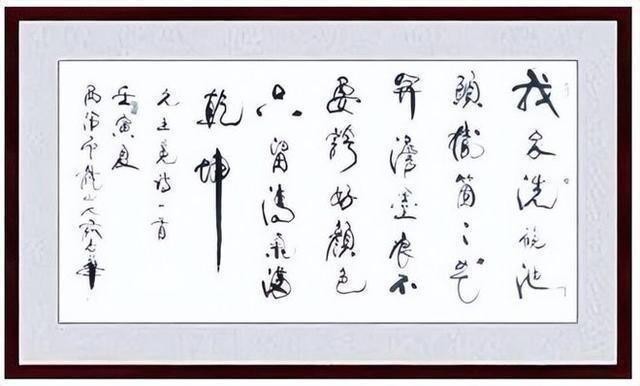 我家洗硯池
頭樹箇〻花
開澹墨痕不
要誇好顏色
只留清氣滿
乾坤
元王冕詩一首
壬寅夏
龍山人